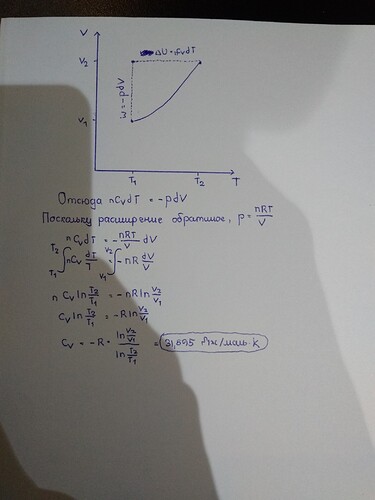 V
ΔU = nCvdT
V2
w = -pdV
V1
T1 T2 T
Отсюда nCvdT = -pdV
Поскольку расширение обратимое, p = nRT/V
nCvdT = -nRT/V dV
∫T1T2 nCv dT/T = ∫V1V2 -nR dV/V
n Cv ln T2/T1 = -nR ln V2/V1
Cv ln T2/T1 = -R ln V2/V1
Cv = -R · ln V2/V1 / ln T2/T1 = 31,595 Дж/моль·К